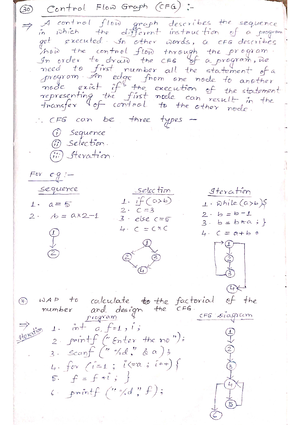 30 Control Flow Graph (CFG) :-
⇒ A control flow graph describes the sequence
in which the different instruction of a program
get executed. In other words, a CFG describes
how the control flow through the program
In order to draw the CFG of a program, we
need to first number all the statement of a
program. An edge from one node to another
node exist if the execution of the statement
representing the first node can result in the
transfer of control to the other node
∴ CFG can be three types —
(i) Sequence
(ii) Selection
(iii) Iteration
For eg :-
Sequence Selection Iteration
1. a = 5 1. if (a>b) 1. while (a>b){
2. b = a×2-1 2. c=3 2. b=b-1
3. else c=5 3. b=b*a ; }
4. c = c*c 4. c = a+b
1 2
1 2 3 4
1 2 3 4
WAP to calculate the factorial of the
number and design the CFG
⇒ program CFG Diagram
Iteration 1. int a, f=1, i ;
2. printf ("Enter the no");
3. scanf ("%d" &a);
4. for (i=1 ; i<=a ; i++){
5. f = f*i ; }
6. printf ("%d" f);
1 2 3 4 5 6